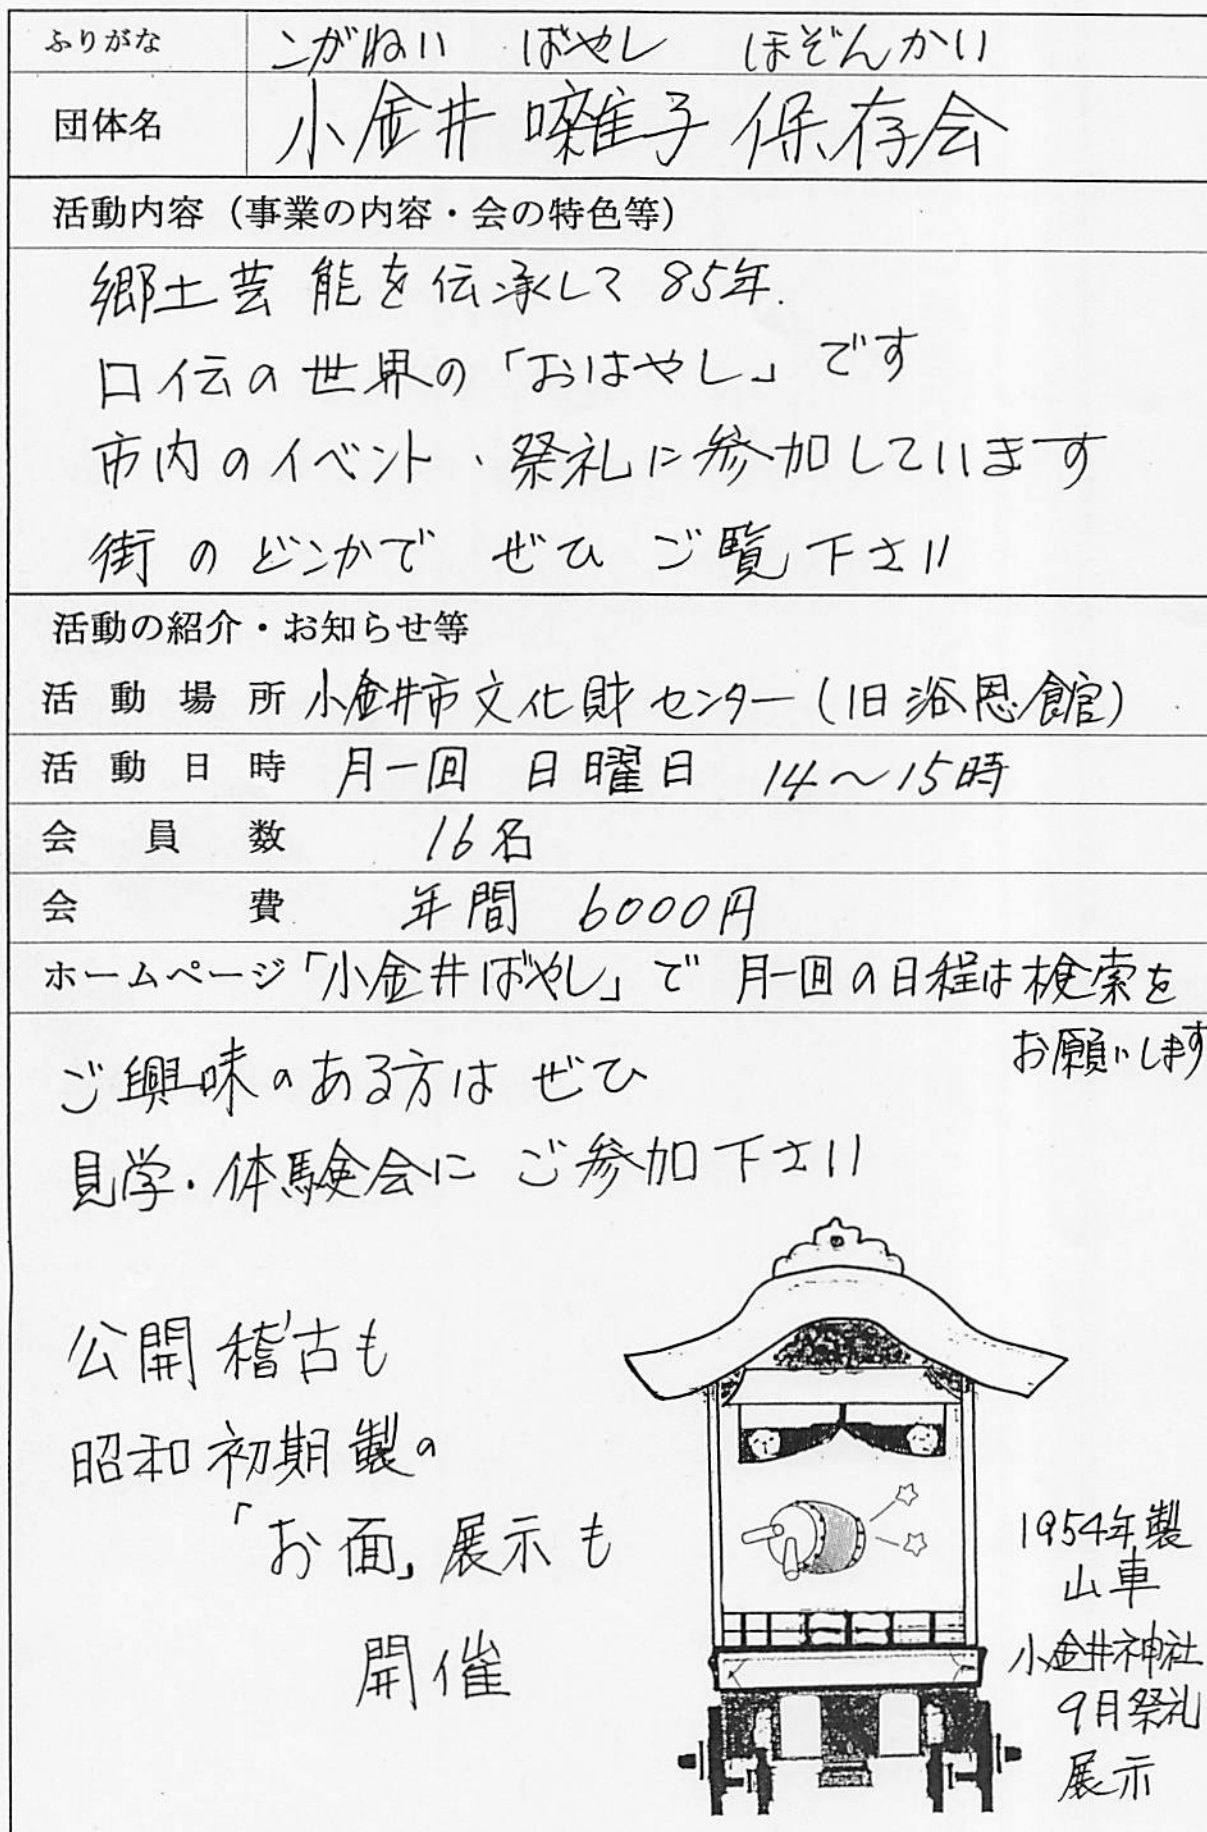 ふりがな こがねい ばやし ほぞんかい
団体名 小金井 囃子 保存会
活動内容（事業の内容・会の特色等）
郷土芸能を伝承して 85年.
口伝の世界の「おはやし」です
市内のイベント・祭礼に参加しています
街のどこかで ぜひ ご覧下さい
活動の紹介・お知らせ等
活動場所 小金井市文化財センター（旧浴恩館）
活動日時 月一回 日曜日 14〜15時
会員数 16名
会費 年間 6000円
ホームページ「小金井ばやし」で 月一回の日程は検索を
お願いします
ご興味のある方は ぜひ
見学・体験会に ご参加下さい
公開稽古も
昭和初期製の
「お面」展示も
開催
1954年製
山車
小金井神社
9月祭礼
展示